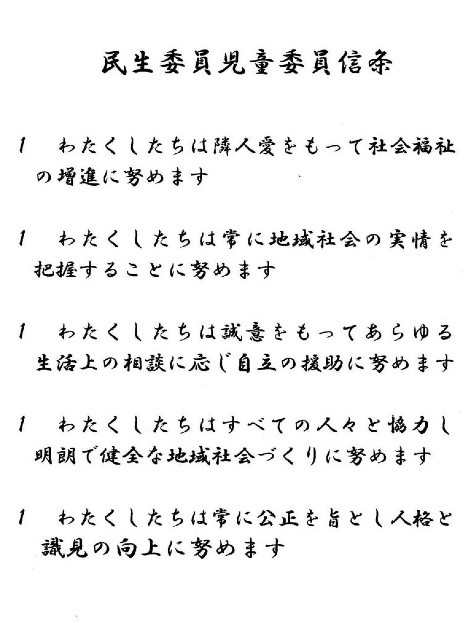 民生委員児童委員信条
1 わたくしたちは隣人愛をもって社会福祉
の増進に努めます
1 わたくしたちは常に地域社会の実情を
把握することに努めます
1 わたくしたちは誠意をもってあらゆる
生活上の相談に応じ自立の援助に努めます
1 わたくしたちはすべての人々と協力し
明朗で健全な地域社会づくりに努めます
1 わたくしたちは常に公正を旨とし人格と
識見の向上に努めます